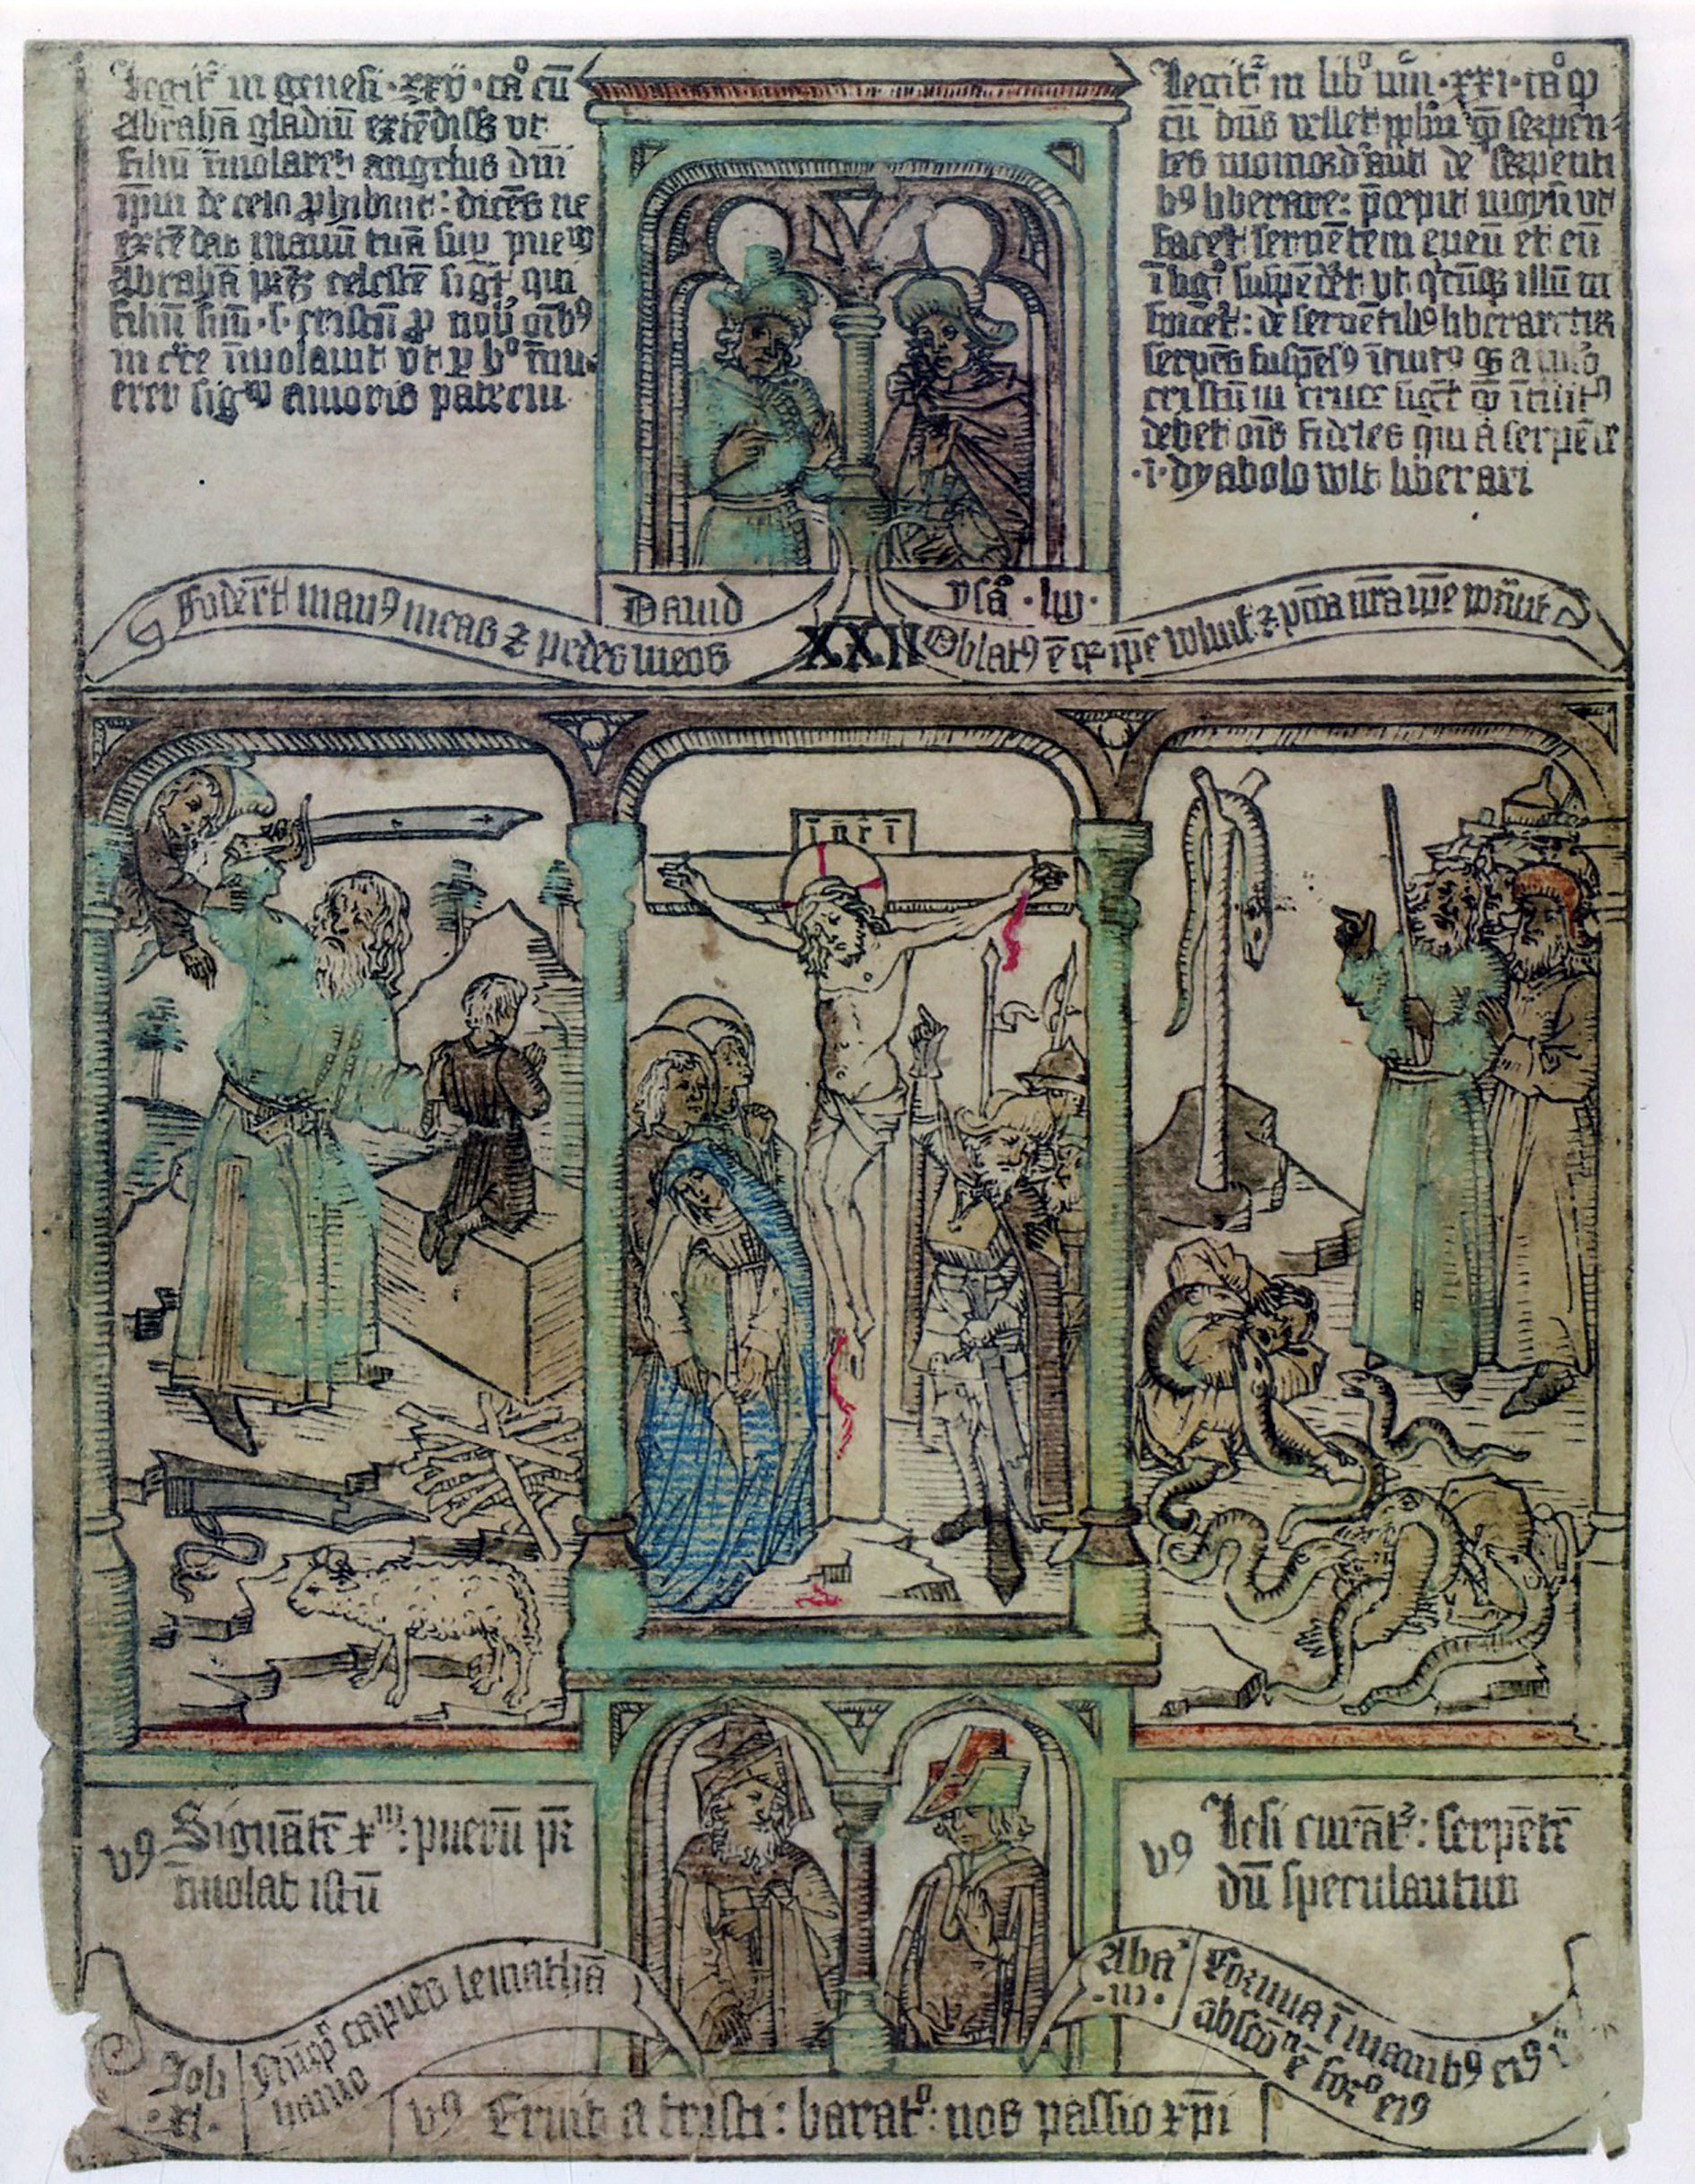 Legit᷑ in genesi · xxij · ca° cū
Abrahā gladiū extēdiss; vt
filiū īmolaret angelus dn̄i
ip̄m de celo ꝓhibuit : dicēs ne
extēdas manū tuā suꝑ pueꝝ
Abrahā pr̄ē celestē sigt̄, qui
filiū suū · s · cristū ꝓ nob̄ oīb9
in cr̄ce īmolauit vt ꝑ h° īnu-
eret sigꝝ amoris patrem
Legit᷑ in lib° nūi · xxi · ca° ꝙ
cū dn̄s vellet ꝓplm̄ q̄ serpen-
tes momord'aūt de serpenti
b9 liberare : p̄cepit moysi vt
facet serpētem eneū et eū
ī lig° suspēdet vt q°cūq; illū in
spicet : de serpētib9 liberaretur
serpēs suspēs9 ītuit9
cristū in cruce sigt̄ q̄ ītuit9
debet oīs fideles qui a serpēte
· i · dyabolo vult liberari
Dauid
ysa° · liij ·
Foderūt man9 meas ⁊ pedes meos
XXII
Oblat9 ē qꝛ ip̄e voluit ⁊ pcc̄a nr̄a ip̄e portauit
i n r i
v9 Signātē xm̄ : puerū pr̄
īmolat istū
v9 Lesi curāt᷑ : serpētē
dū speculantur
Job
· xl ·
Nūq° capies leuiathā
hamo
Aba°
· iii ·
Cornua ī manib9 ei9 i
abscō° ē for° ei9
v9 Eruit a tristi : barat° : nos passio xp̄i